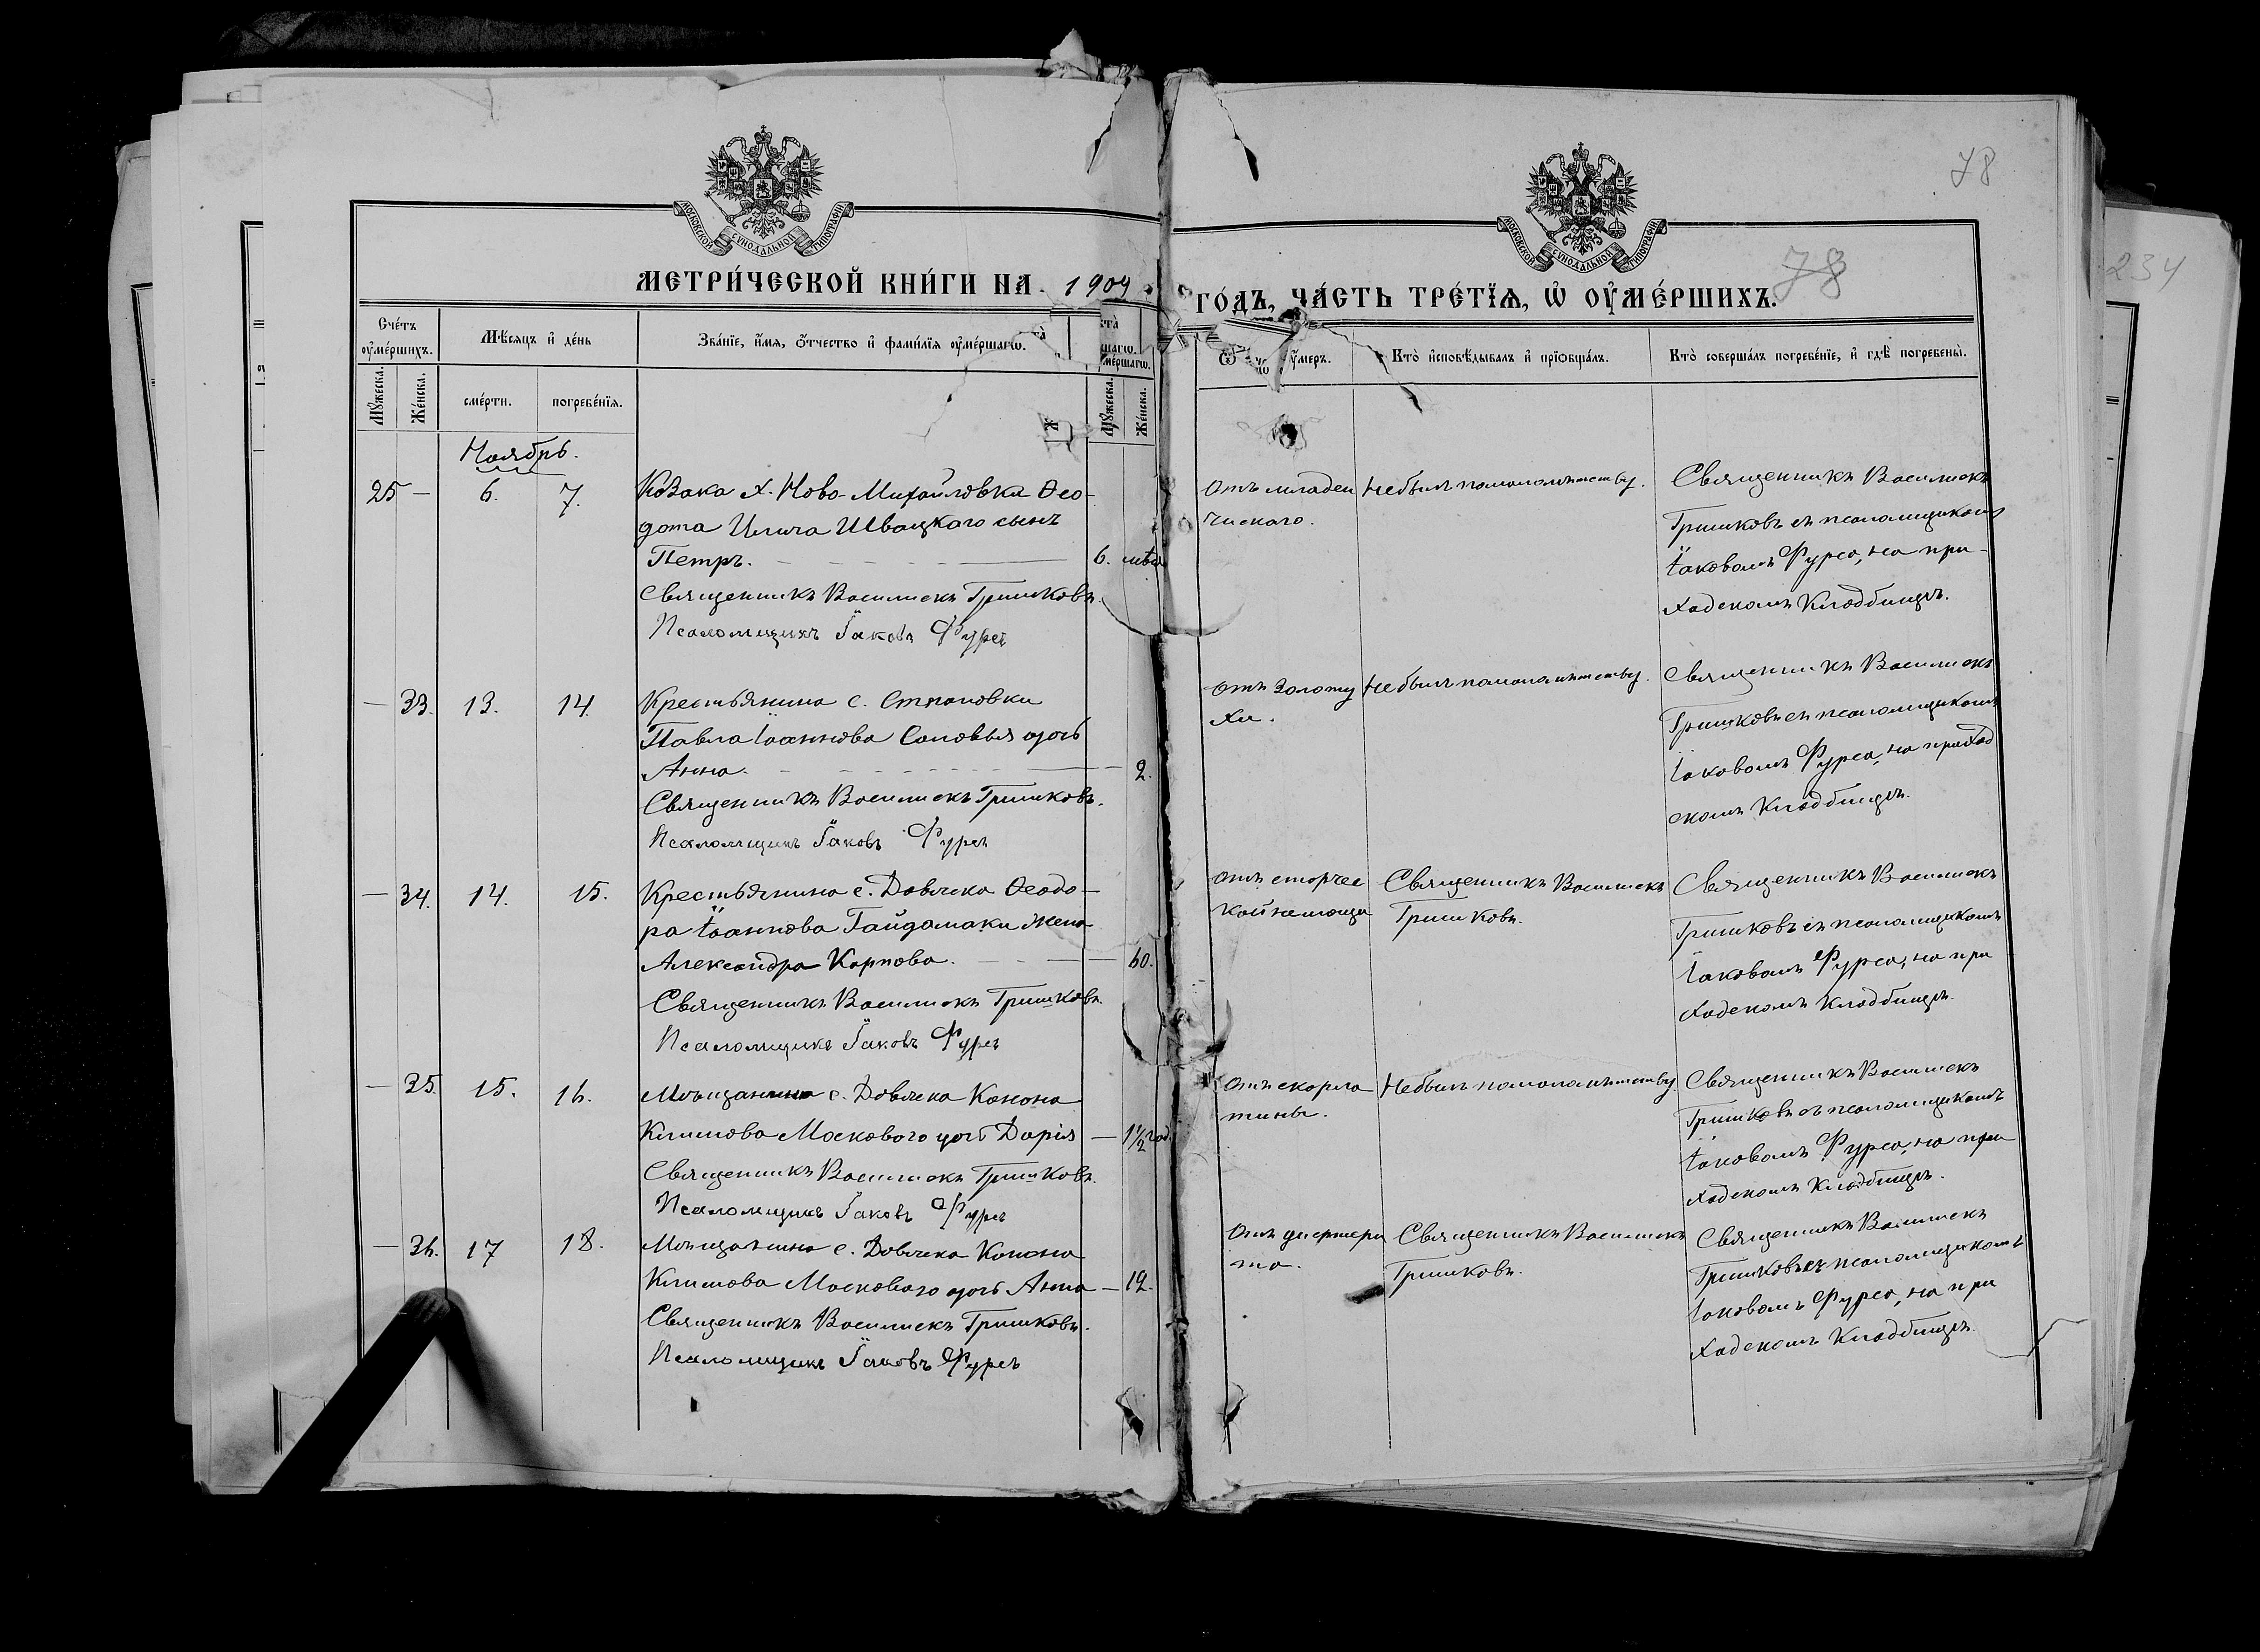 78
МОСКОВСКОЙ СѴНОДАЛЬНОЙ ТИПОГРАФІИ
МОСКОВСКОЙ СѴНОДАЛЬНОЙ ТИПОГРАФІИ
МЕТРИ́ЧЕСКОЙ КНИ́ГИ НА 1904
ГО́ДЪ, ЧА́СТЬ ТРЕ́ТЇѦ, Ѽ ОУ҆МЕ́РШИХЪ.
78
234
Сче́тъ оу҆ме́ршихъ.
Мѣ́сяцъ и҆ де́нь
Зва́нїе, и҆́мя, ѻ҆́тчество и҆ фами́лїя оу҆ме́ршагѡ.
Кто̀ и҆сповѣ́дывалъ и҆ прїѡбща́лъ.
Кто̀ соверша́лъ погребе́нїе, и҆ гдѣ̀ погребены̀.
Мꙋ́жеска.
Же́нска.
сме́рти.
погребе́нїя.
Мꙋ́жеска.
Же́нска.
Ноябрь.
25 — 6. 7.
Козака х. Ново-Михайловка Ѳео-
дота Илича Швацкаго сынъ
Петръ. 6. мѣс
Священникъ Василискъ Гришковъ.
Псаломщикъ Іаковъ Фурса
Отъ младен
ческаго.
Не былъ по малолѣтству.
Священникъ Василискъ
Гришковъ съ псаломщикомъ
Іаковомъ Фурса, на при-
ходскомъ кладбищѣ.
— 33. 13. 14.
Крестьянина с. Степановки
Павла Іоаннова Соловья дочь
Анна. — 2.
Священникъ Василискъ Гришковъ.
Псаломщикъ Іаковъ Фурса
Отъ золоту
хи.
Не былъ по малолѣтству.
Священникъ Василискъ
Гришковъ съ псаломщикомъ
Іаковомъ Фурса, на приход
скомъ кладбищѣ.
— 34. 14. 15.
Крестьянина с. Довжека Ѳеодо-
ра Іоаннова Гайдамаки жена
Александра Карпова. — 60.
Священникъ Василискъ Гришковъ.
Псаломщикъ Іаковъ Фурса
Отъ старчес
кой немощи
Священникъ Василискъ
Гришковъ.
Священникъ Василискъ
Гришковъ съ псаломщикомъ
Іаковомъ Фурса, на при
ходскомъ кладбищѣ.
— 35. 15. 16.
Мѣщанина с. Довжека Конона
Климова Москового дочь Дарія — 1½ год.
Священникъ Василискъ Гришковъ.
Псаломщикъ Іаковъ Фурса
Отъ скарла
тины.
Не былъ по малолѣтству.
Священникъ Василискъ
Гришковъ съ псаломщикомъ
Іаковомъ Фурса, на при
ходскомъ кладбищѣ.
— 36. 17 18.
Мѣщанина с. Довжека Конона
Климова Москового дочь Анна — 12.
Священникъ Василискъ Гришковъ.
Псаломщикъ Іаковъ Фурса
Отъ дифтери
та.
Священникъ Василискъ
Гришковъ.
Священникъ Василискъ
Гришковъ съ псаломщикомъ
Іаковомъ Фурса, на при
ходскомъ кладбищѣ.